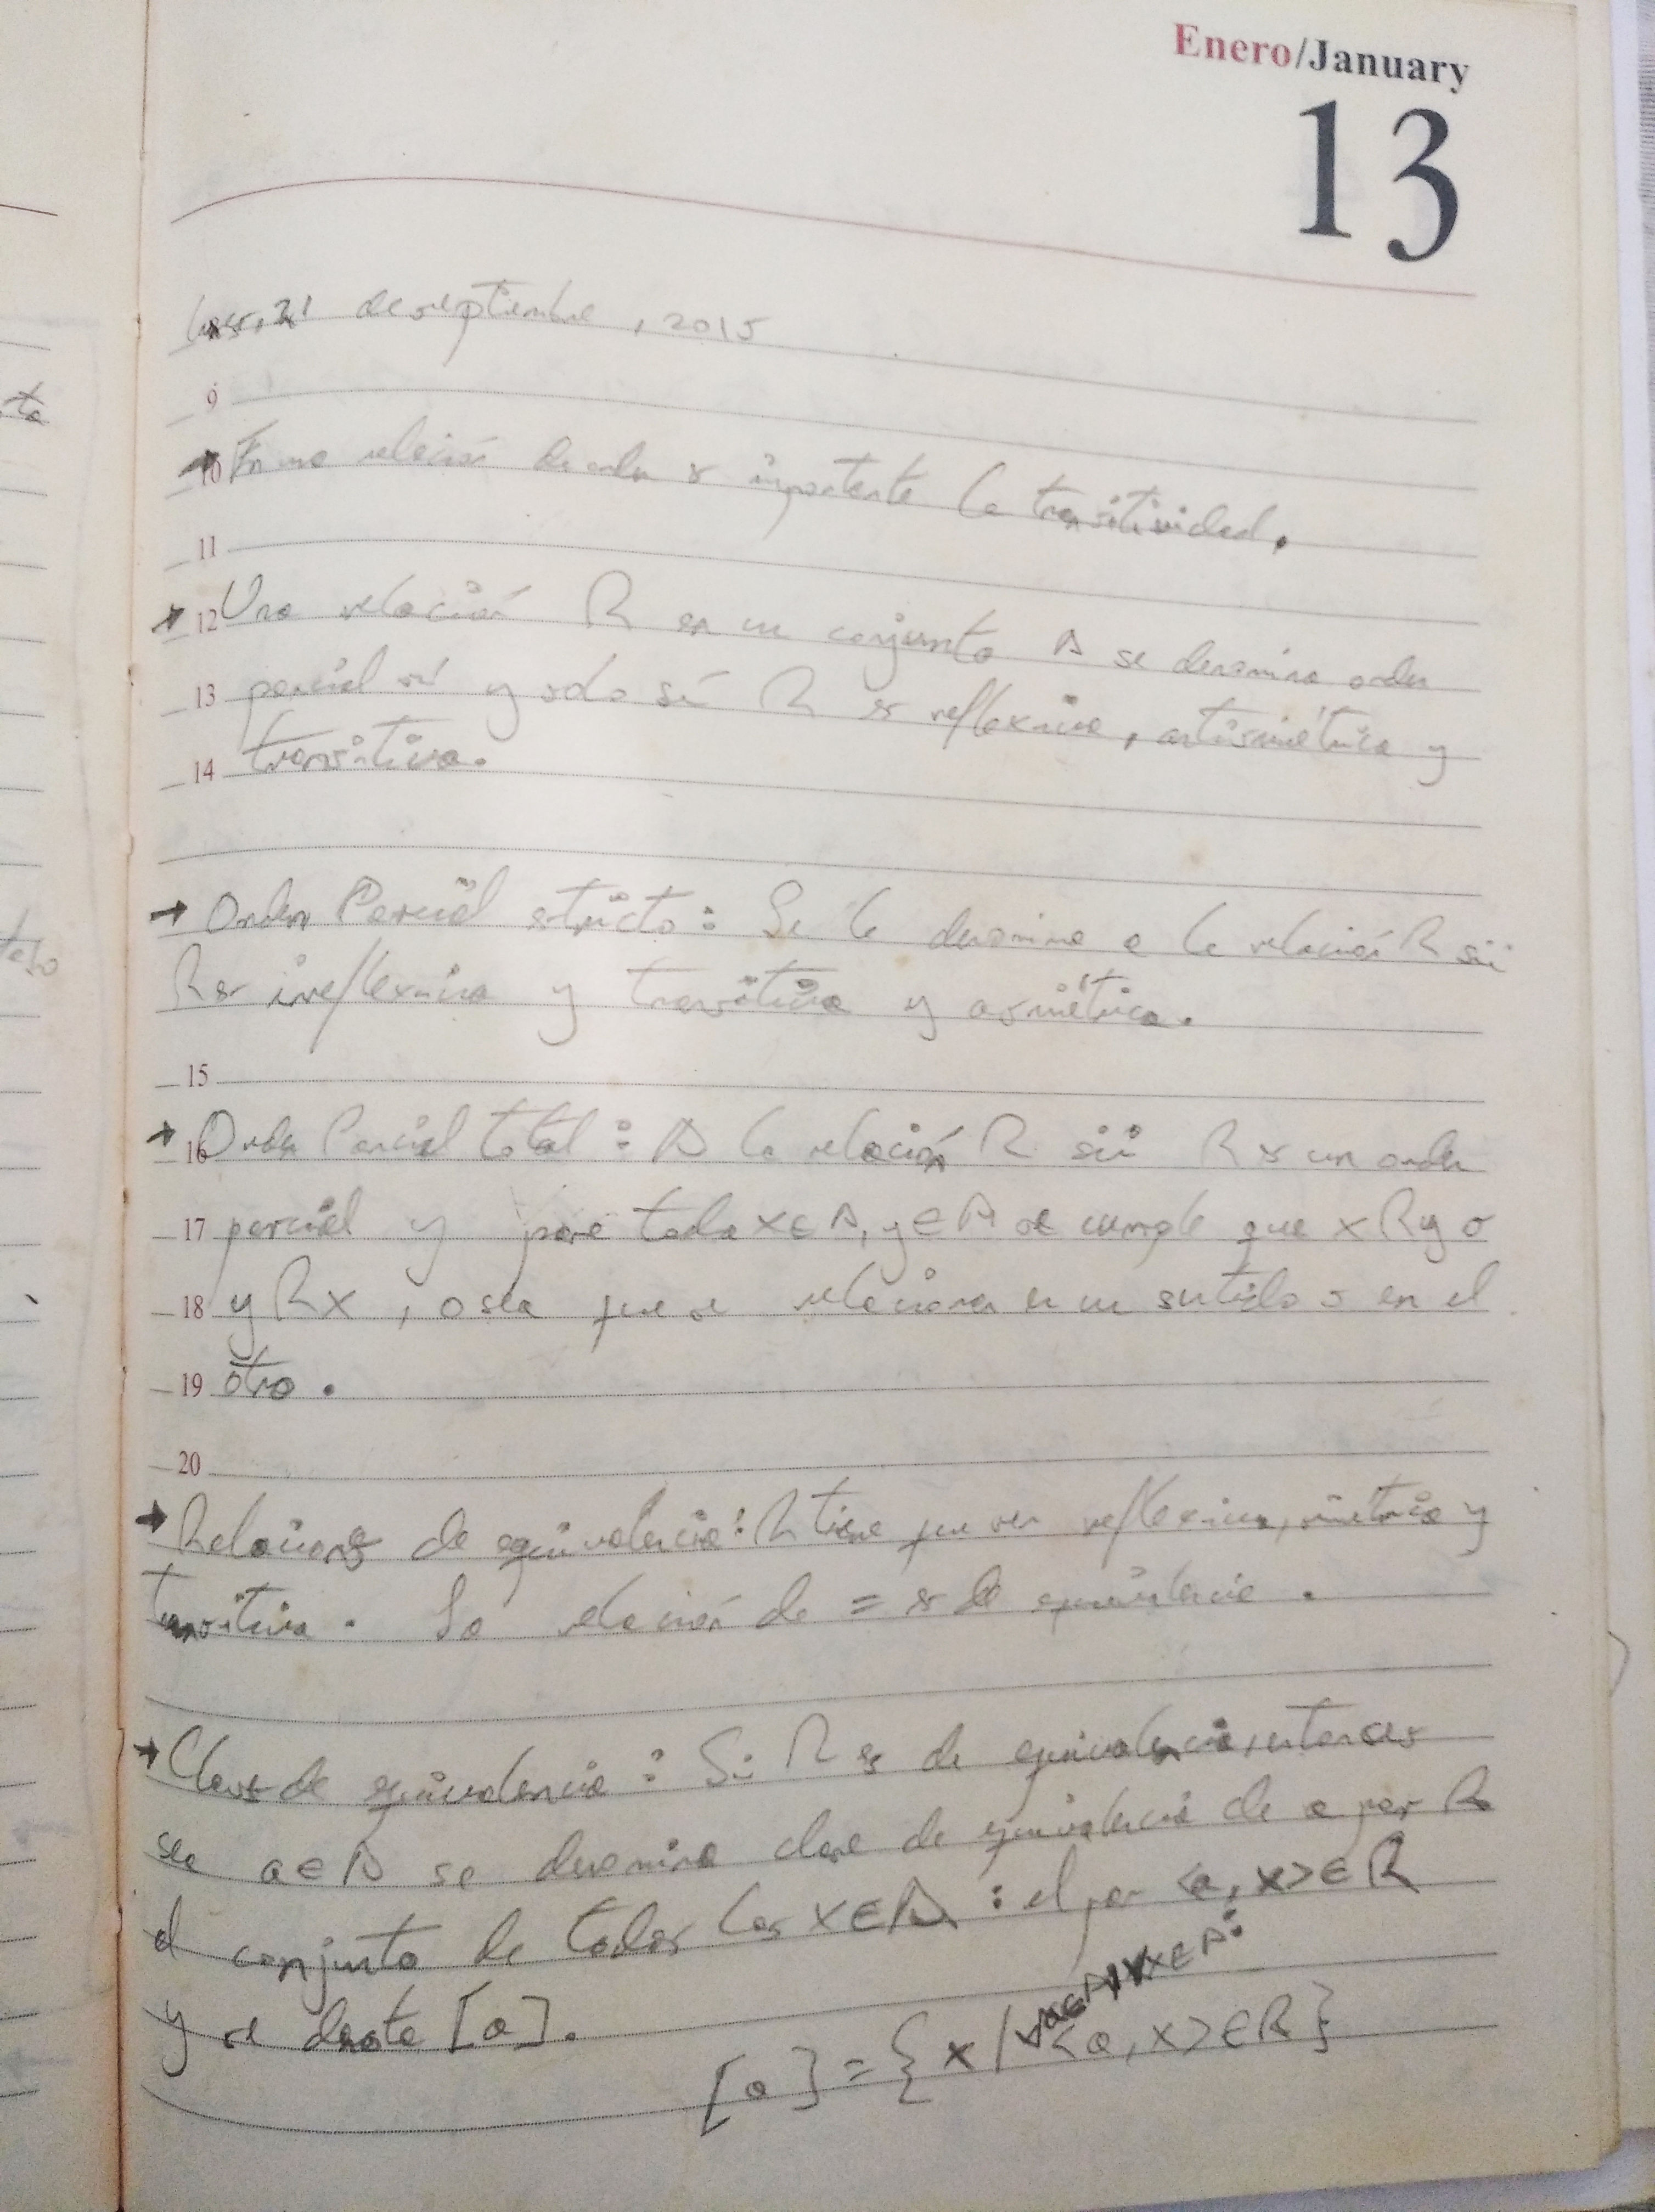 Enero/January
13
21 de septiembre, 2015
9
10 En una relación de orden es importante la transitividad.
11
→ 12 Una relación R en un conjunto A se denomina orden
13 parcial si y solo si R es reflexiva, antisimétrica y
14 transitiva.
→ Orden Parcial estricto: Se le denomina a la relación R sii
R es irreflexiva y transitiva y asimétrica.
15
→ 16 Orden Parcial total: A la relación R sii R es un orden
17 parcial y para todo x∈A, y∈A se cumple que xRy o
18 yRx, o sea que se relacionan en un sentido o en el
19 otro.
20
→ Relaciones de equivalencia: R tiene que ser reflexiva, simétrica y
transitiva. La relación de = es de equivalencia.
→ Clases de equivalencia: Si R es de equivalencia, entonces
sea a∈A se denomina clase de equivalencia de a por R
el conjunto de todos los x∈A : el par <a, x>∈R
y se denota [a].
∀a∈A ∧ ∀x∈A:
[a] = {x / <a, x>∈R}
ta